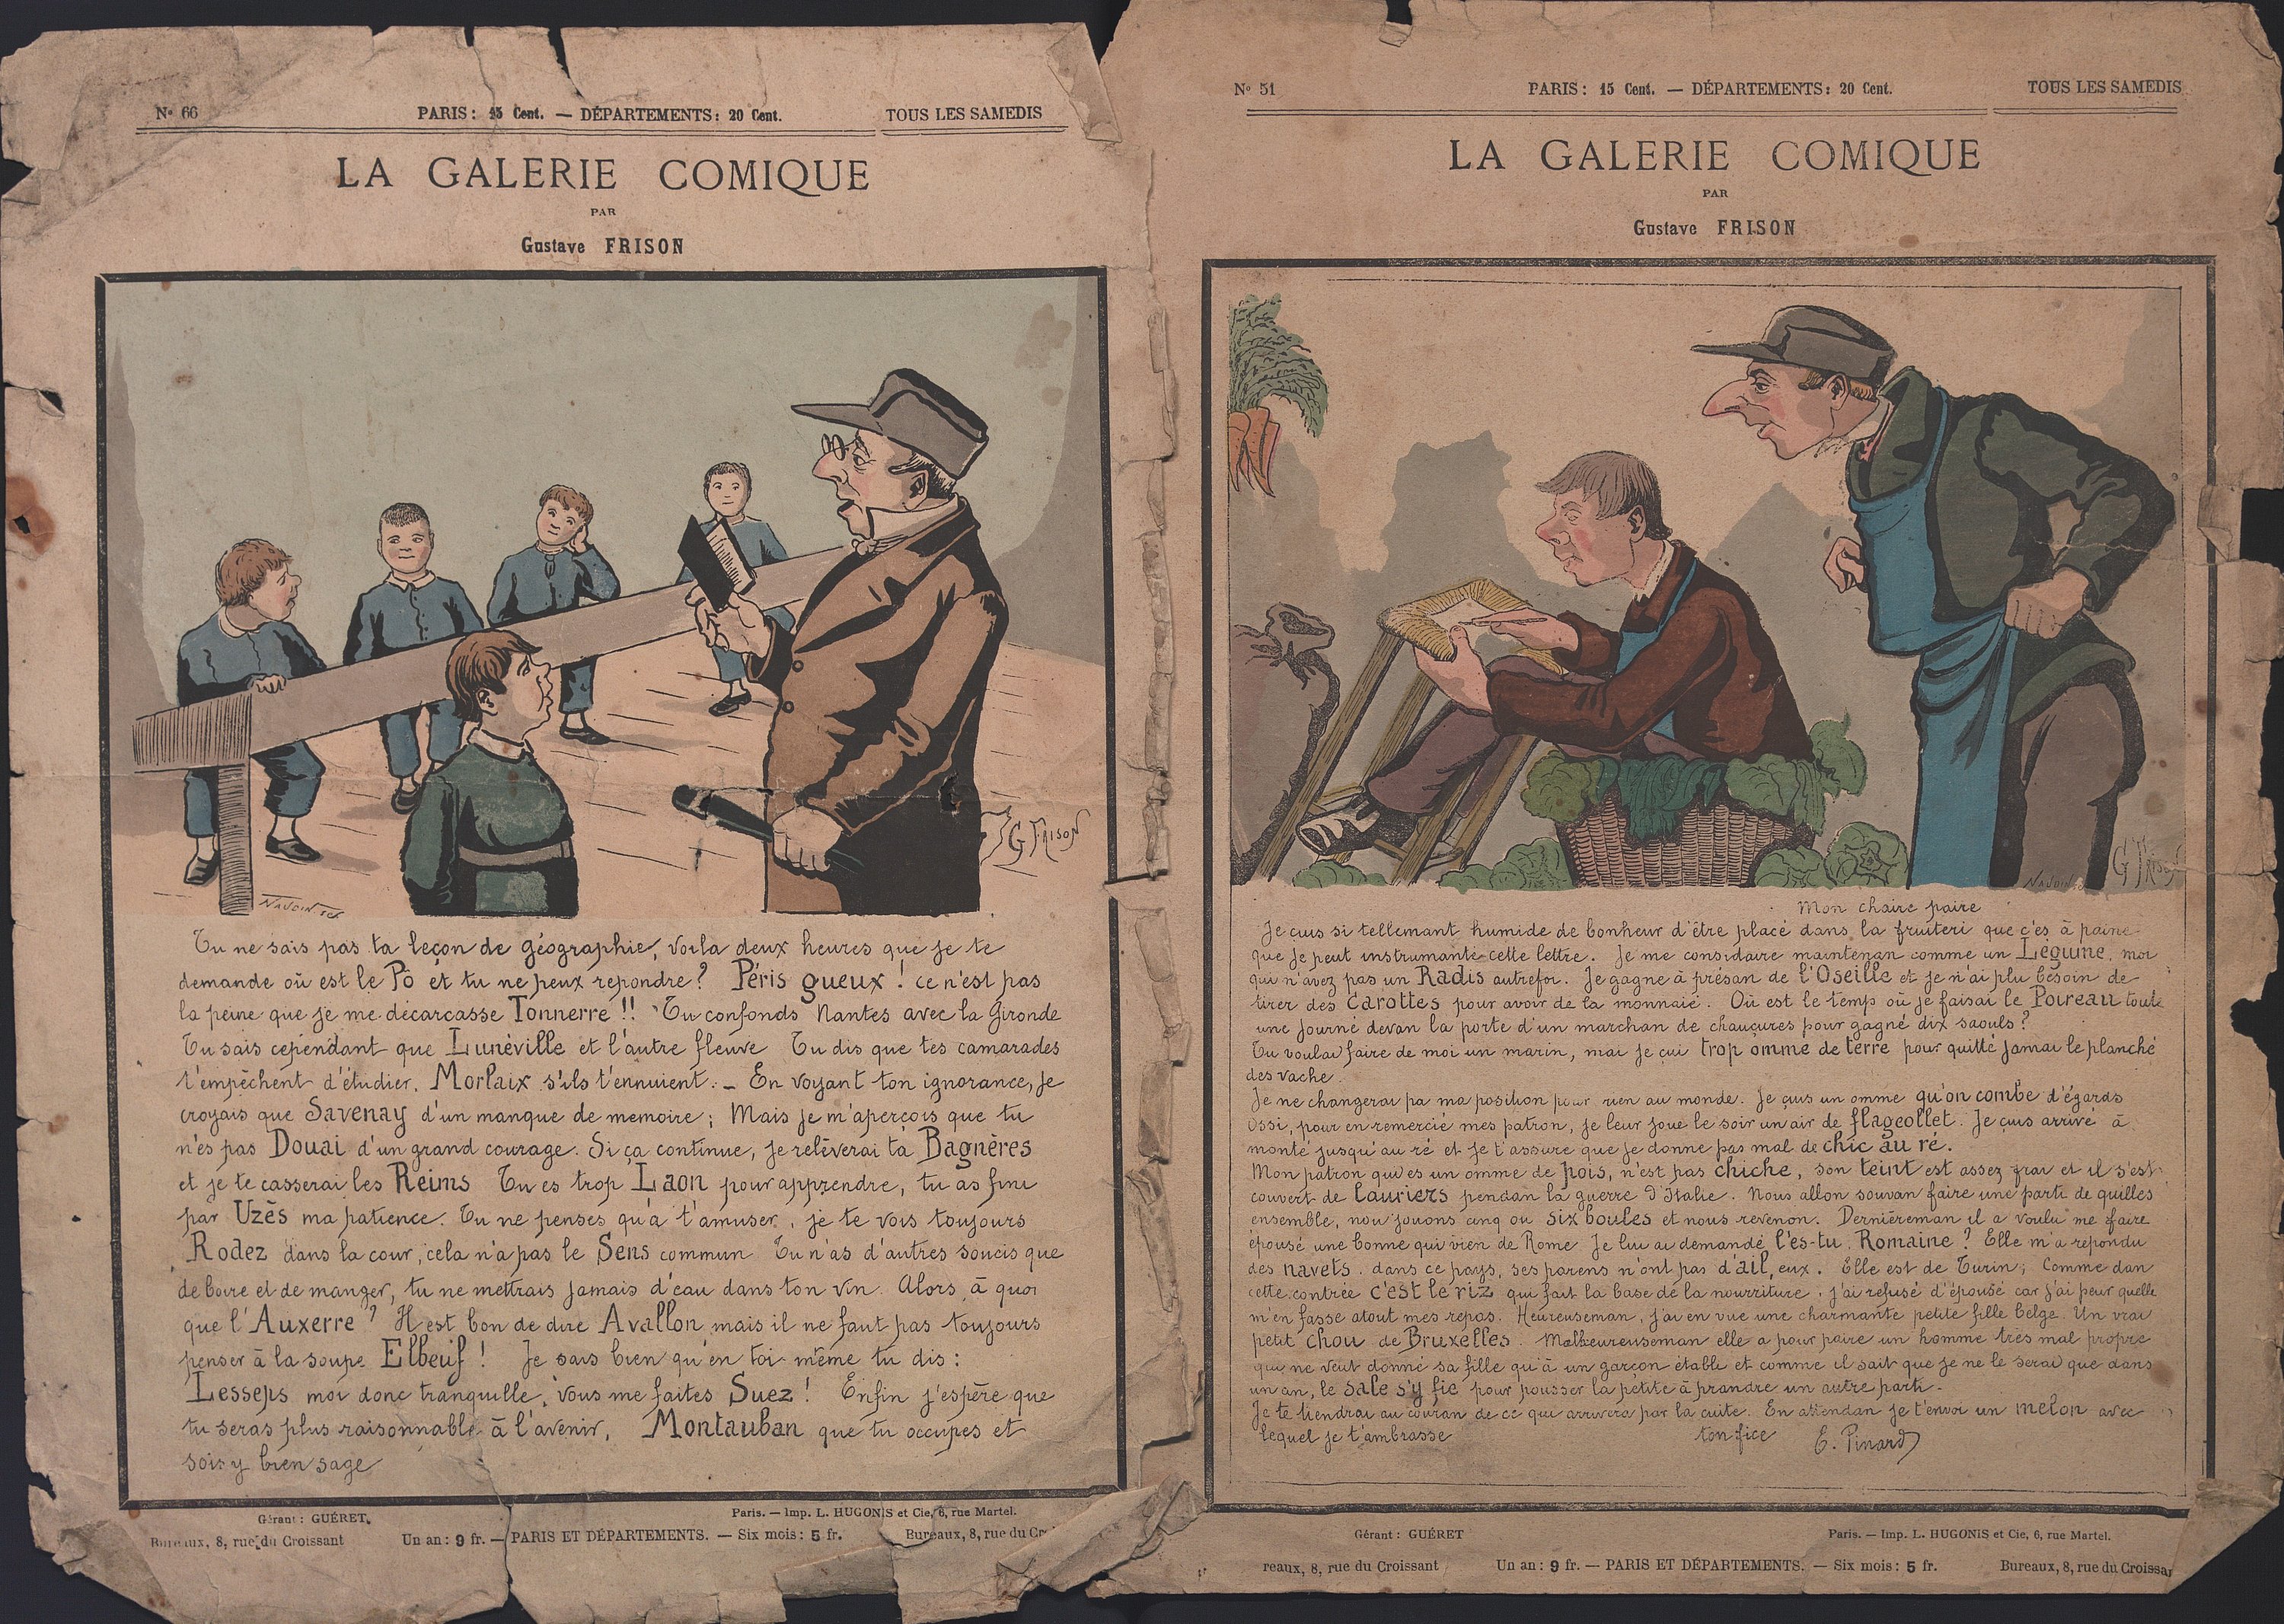 No 66 PARIS: 15 Cent. — DÉPARTEMENTS: 20 Cent. TOUS LES SAMEDIS
LA GALERIE COMIQUE
PAR
Gustave FRISON
G FRISON
NAUDIN SCR
Tu ne sais pas ta leçon de géographie, voila deux heures que je te
demande où est le Pô et tu ne peux repondre? Péris gueux! ce n'est pas
la peine que je me décarcasse Tonnerre!! Tu confonds Nantes avec la Gironde
Tu sais cependant que Lunéville et l'autre fleuve Tu dis que tes camarades
t'empêchent d'étudier. Morlaix s'ils t'ennuient. — En voyant ton ignorance, je
croyais que Savenay d'un manque de memoire; Mais je m'aperçois que tu
n'es pas Douai d'un grand courage. Si ça continue, je relèverai ta Bagnères
et je te casserai les Reims Tu es trop Laon pour apprendre, tu as fini
par Uzès ma patience. Tu ne penses qu'à t'amuser, je te vois toujours
Rodez dans la cour, cela n'a pas le Sens commun Tu n'as d'autres soucis que
de boire et de manger, tu ne mettrais jamais d'eau dans ton vin. Alors, à quoi
que l'Auxerre? Il est bon de dire Avallon mais il ne faut pas toujours
penser à la soupe Elbeuf! Je sais bien qu'en toi même tu dis:
Lesseps moi donc tranquille, vous me faites Suez! Enfin j'espère que
tu seras plus raisonnable à l'avenir, Montauban que tu occupes et
sois y bien sage
Gérant: GUÉRET. Paris. — Imp. L. HUGONIS et Cie, 6, rue Martel.
Bureaux, 8, rue du Croissant Un an: 9 fr. — PARIS ET DÉPARTEMENTS. — Six mois: 5 fr. Bureaux, 8, rue du Cr
No 51 PARIS: 15 Cent. — DÉPARTEMENTS: 20 Cent. TOUS LES SAMEDIS
LA GALERIE COMIQUE
PAR
Gustave FRISON
NAUDIN
G FRISON
Mon chaire paire
Je cuis si tellemant humide de bonheur d'être placé dans la fruiteri que c'es à paine
que je peut instrumanté cette lettre. Je me considaire maintenan comme un Légume, moi
qui n'avez pas un Radis autrefoi. Je gagne à présan de l'Oseille et je n'ai plu besoin de
tirer des carottes pour avoir de la monnaié. Où est le temps où je faisai le Poureau toute
une journé devan la porte d'un marchan de chauçures pour gagné dix saouls?
Tu voulai faire de moi un marin, mai je çui trop omme de terre pour quitté jamai le planché
des vache.
Je ne changerai pa ma position pour rien au monde. Je çuis un omme qu'on combe d'égards
Ossi, pour en remercié mes patron, je leur joue le soir un air de flageollet. Je çuis arrivé à
monté jusqu'au ré et je t'assure que je donne pas mal de chic au ré.
Mon patron qui es un omme de pois, n'est pas chiche, son teint est assez frai et il s'est
couvert de lauriers pendan la guerre d'Italie. Nous allon souvan faire une parti de quilles
ensemble, nou jouons cinq ou six boules et nous revenon. Dernièreman il a voulu me faire
épousé une bonne qui vien de Rome Je lui ai demandé l'es-tu, Romaine? Elle m'a repondu
des navets. dans ce pays, ses parens n'ont pas d'ail, eux. Elle est de Turin; Comme dan
cette contrée c'est le riz qui fait la base de la nourriture, j'ai refusé d'épousé car j'ai peur quelle
m'en fasse atout mes repas. Heureuseman, j'ai en vue une charmante petite fille belge. Un vrai
petit chou de Bruxelles. Malheureuseman elle a pour paire un homme très mal propre
qui ne veut donné sa fille qu'à un garçon établi et comme il sait que je ne le serai que dans
un an, le sale s'y fie pour pousser la petite à prandre un autre parti.
Je te tiendrai au couran de ce qui arrivera par la cuite. En attendan je t'envoi un melon avec
lequel je t'ambrasse ton fice E. Pinard
Gérant: GUÉRET Paris. — Imp. L. HUGONIS et Cie, 6, rue Martel.
reaux, 8, rue du Croissant Un an: 9 fr. — PARIS ET DÉPARTEMENTS. — Six mois: 5 fr. Bureaux, 8, rue du Croissa